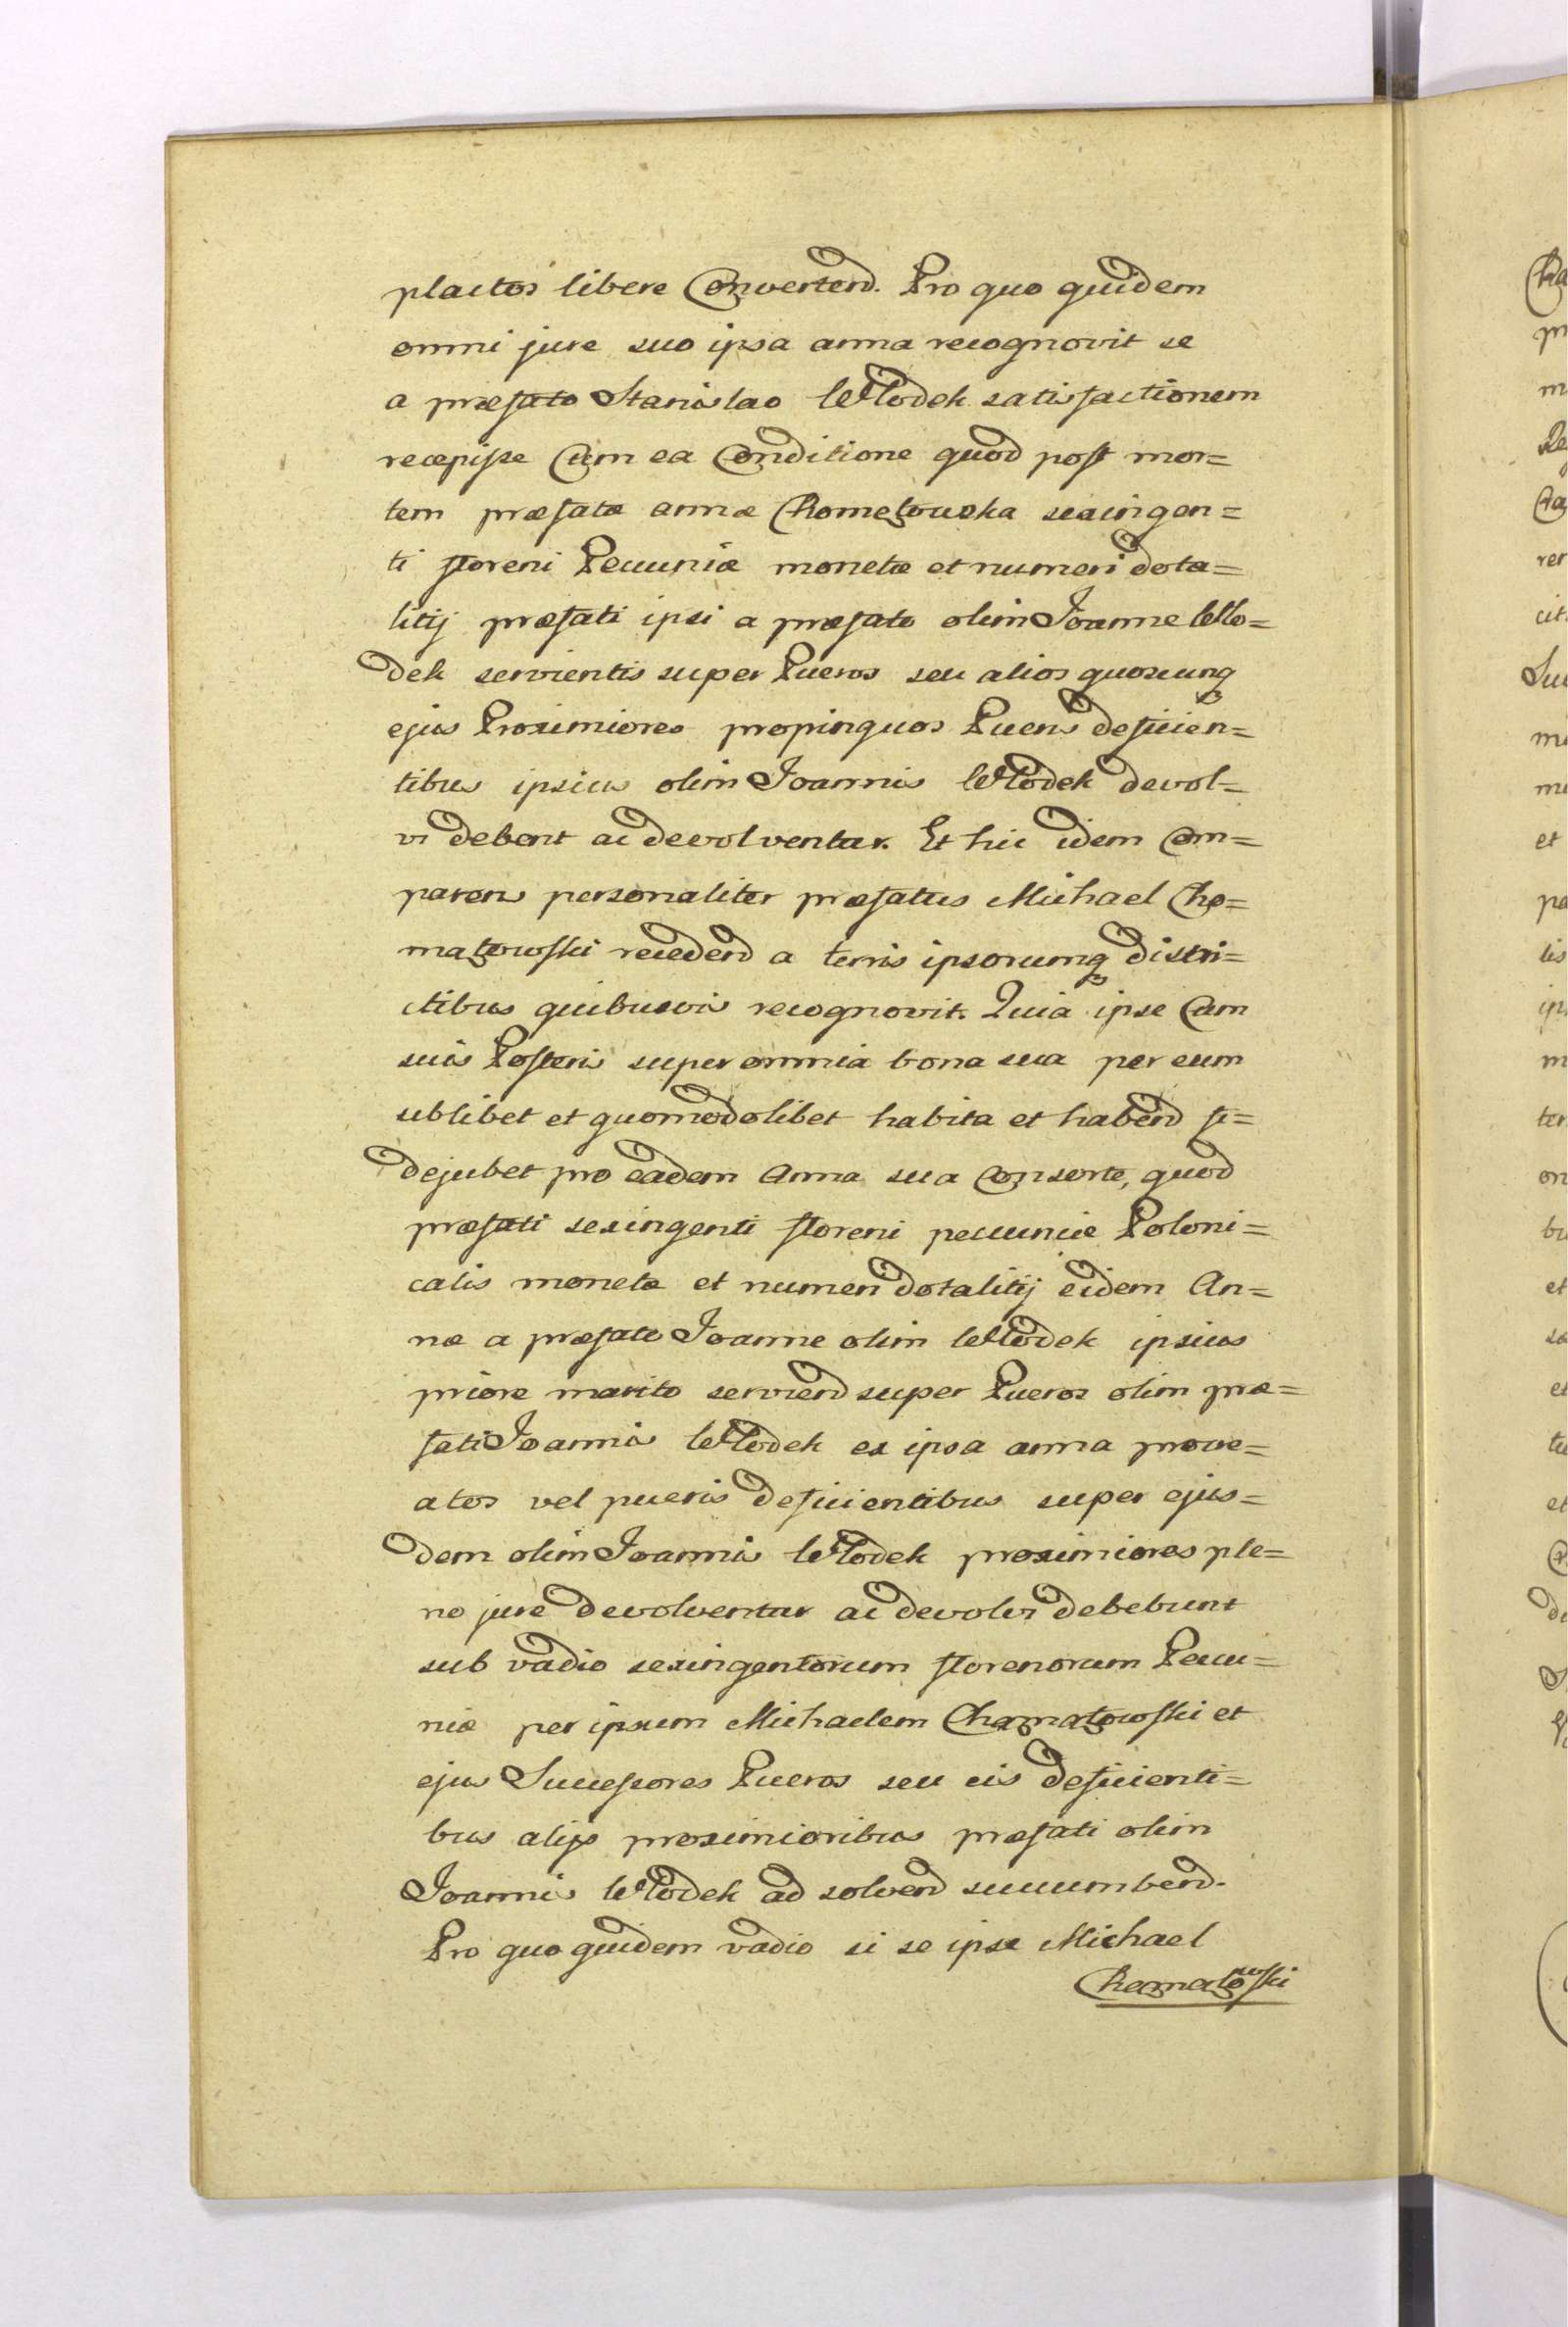 placitos libere Convertend. Pro quo quidem
omni jure suo ipsa anna recognovit se
a præfato Stanislao Włodek satisfactionem
recepisse Cum ea Conditione quod post mor=
tem præfatæ annæ Chometowska sexingen=
ti floreni Pecuniæ monetæ et numeri dota=
litij præfati ipsi a præfato olim Joanne Wło=
dek servientis super Pueros seu alios quoscunq
ejus Proximiores propinquos Pueris deficien=
tibus ipsius olim Joannis Włodek devol=
vi debent ac devolventur. Et hic idem Com=
parens personaliter præfatus Michael Cho=
matowski recedend a terris ipsorumq distri=
ctibus quibusvis recognovit. Quia ipse Cum
suis Posteris super omnia bona sua per eum
ublibet et quomodolibet habita et habend fi=
dejubet pro eadem Anna sua Consorte, quod
præfati sexingenti floreni pecuniæ Poloni=
calis monetæ et numeri dotalitij eidem An=
næ a præfato Joanne olim Włodek ipsius
priore marito serviend super Pueros olim præ=
fati Joannis Włodek ex ipsa anna procre=
atos vel pueris deficientibus super ejus=
dem olim Joannis Włodek proximiores ple=
no jure devolventur ac devolvi debebunt
sub vadio sexingentorum florenorum Pecu=
niæ per ipsum Michaelem Chamatowski et
ejus Successores Pueros seu eis deficienti=
bus alijs proximioribus præfati olim
Joannis Włodek ad solvend succumbend.
Pro quo quidem vadio si se ipse Michael
Chamatowski